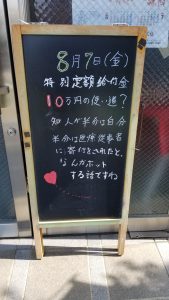 8月7日(金)
特別定額給付金
10万円の使い道?
知人が半分は自分
半分は医療従事者
に寄付をされたと、
なんかホット
する話ですね